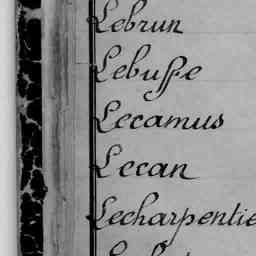 Lebrun
Lebusse
Lecamus
Lecan
Lecharpentie